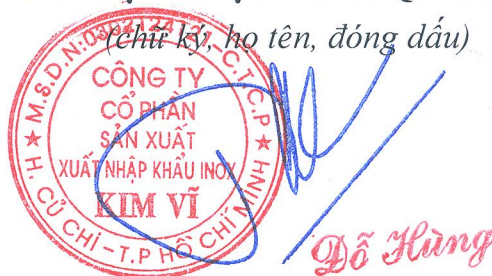 (chữ ký, họ tên, đóng dấu)
C.T.C.P
CÔNG TY
CỔ PHẦN
SẢN XUẤT
XUẤT NHẬP KHẨU INOX
KIM VĨ
H. CỦ CHI - T.P HỒ CHÍ MINH
Đỗ Hùng